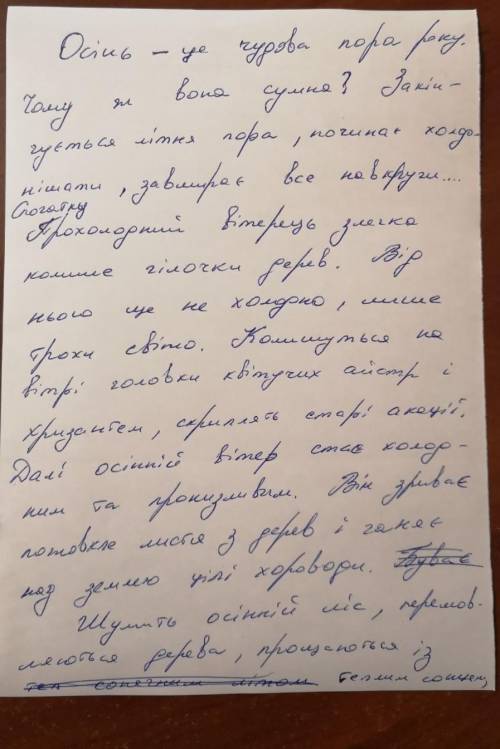 Осінь – це чудова пора року.
Чому ж вона сумна? Закін-
чується літня пора, починає холод-
нішати, завмирає все навкруги....
Спочатку
Прохолодний вітерець злегка
колише гілочки дерев. Від
нього ще не холодно, лише
трохи свіжо. Колишуться на
вітрі головки квітучих айстр і
хризантем, скриплять старі акації.
Далі осінній вітер стає холод-
ним та пронизливим. Він зриває
пожовкле листя з дерев і ганяє
над землею цілі хороводи. Буває
Шумить осінній ліс, перемов-
ляються дерева, прощаються із
теп сонячним літом теплим сонцем,